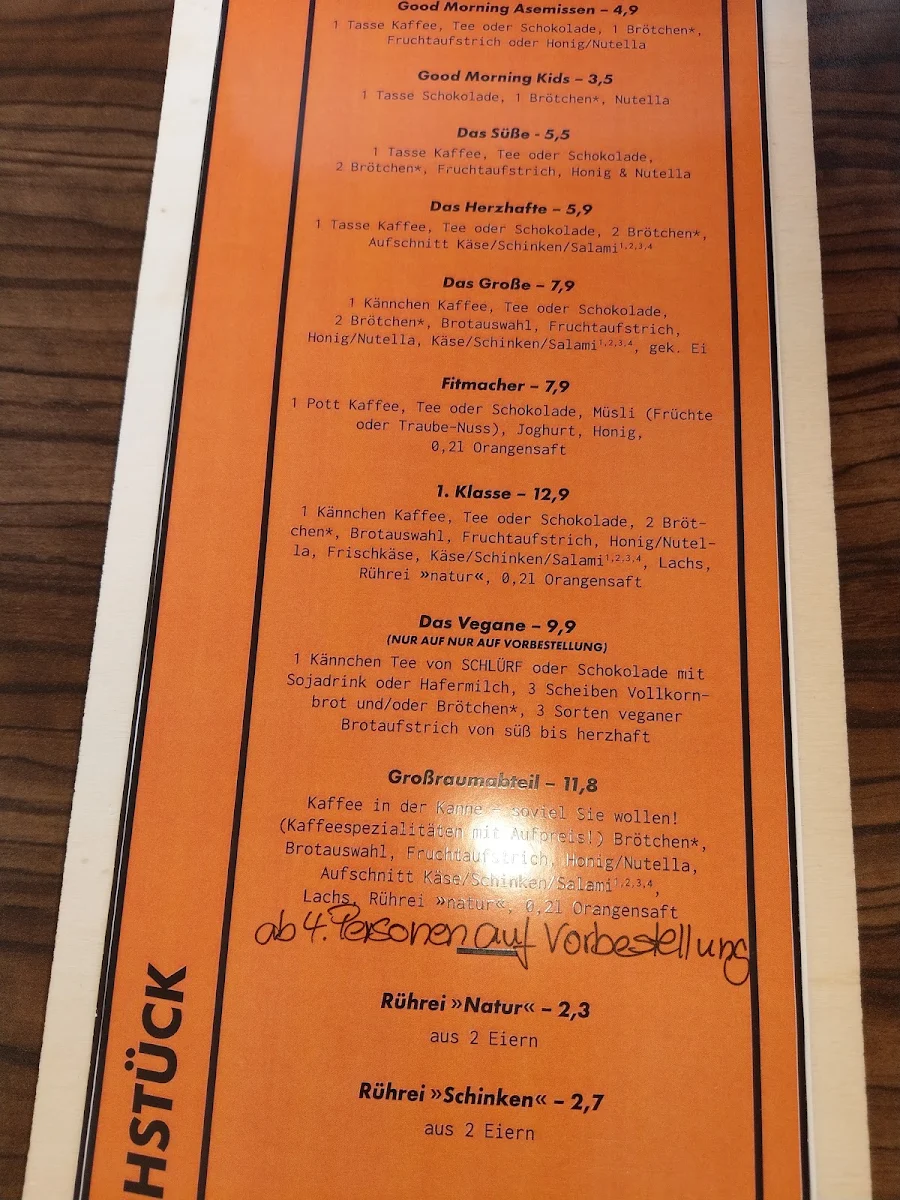 Good Morning Asemissen – 4,9
1 Tasse Kaffee, Tee oder Schokolade, 1 Brötchen*,
Fruchtaufstrich oder Honig/Nutella
Good Morning Kids – 3,5
1 Tasse Schokolade, 1 Brötchen*, Nutella
Das Süße - 5,5
1 Tasse Kaffee, Tee oder Schokolade,
2 Brötchen*, Fruchtaufstrich, Honig & Nutella
Das Herzhafte – 5,9
1 Tasse Kaffee, Tee oder Schokolade, 2 Brötchen*,
Aufschnitt Käse/Schinken/Salami1,2,3,4
Das Große – 7,9
1 Kännchen Kaffee, Tee oder Schokolade,
2 Brötchen*, Brotauswahl, Fruchtaufstrich,
Honig/Nutella, Käse/Schinken/Salami1,2,3,4, gek. Ei
Fitmacher – 7,9
1 Pott Kaffee, Tee oder Schokolade, Müsli (Früchte
oder Traube-Nuss), Joghurt, Honig,
0,2l Orangensaft
1. Klasse – 12,9
1 Kännchen Kaffee, Tee oder Schokolade, 2 Bröt-
chen*, Brotauswahl, Fruchtaufstrich, Honig/Nutel-
la, Frischkäse, Käse/Schinken/Salami1,2,3,4, Lachs,
Rührei »natur«, 0,2l Orangensaft
Das Vegane – 9,9
(NUR AUF NUR AUF VORBESTELLUNG)
1 Kännchen Tee von SCHLÜRF oder Schokolade mit
Sojadrink oder Hafermilch, 3 Scheiben Vollkorn-
brot und/oder Brötchen*, 3 Sorten veganer
Brotaufstrich von süß bis herzhaft
Großraumabteil – 11,8
Kaffee in der Kanne – soviel Sie wollen!
(Kaffeespezialitäten mit Aufpreis!) Brötchen*,
Brotauswahl, Fruchtaufstrich, Honig/Nutella,
Aufschnitt Käse/Schinken/Salami1,2,3,4,
Lachs, Rührei »natur«, 0,2l Orangensaft
ab 4. Personen auf Vorbestellung
Rührei »Natur« – 2,3
aus 2 Eiern
Rührei »Schinken« – 2,7
aus 2 Eiern
HSTÜCK